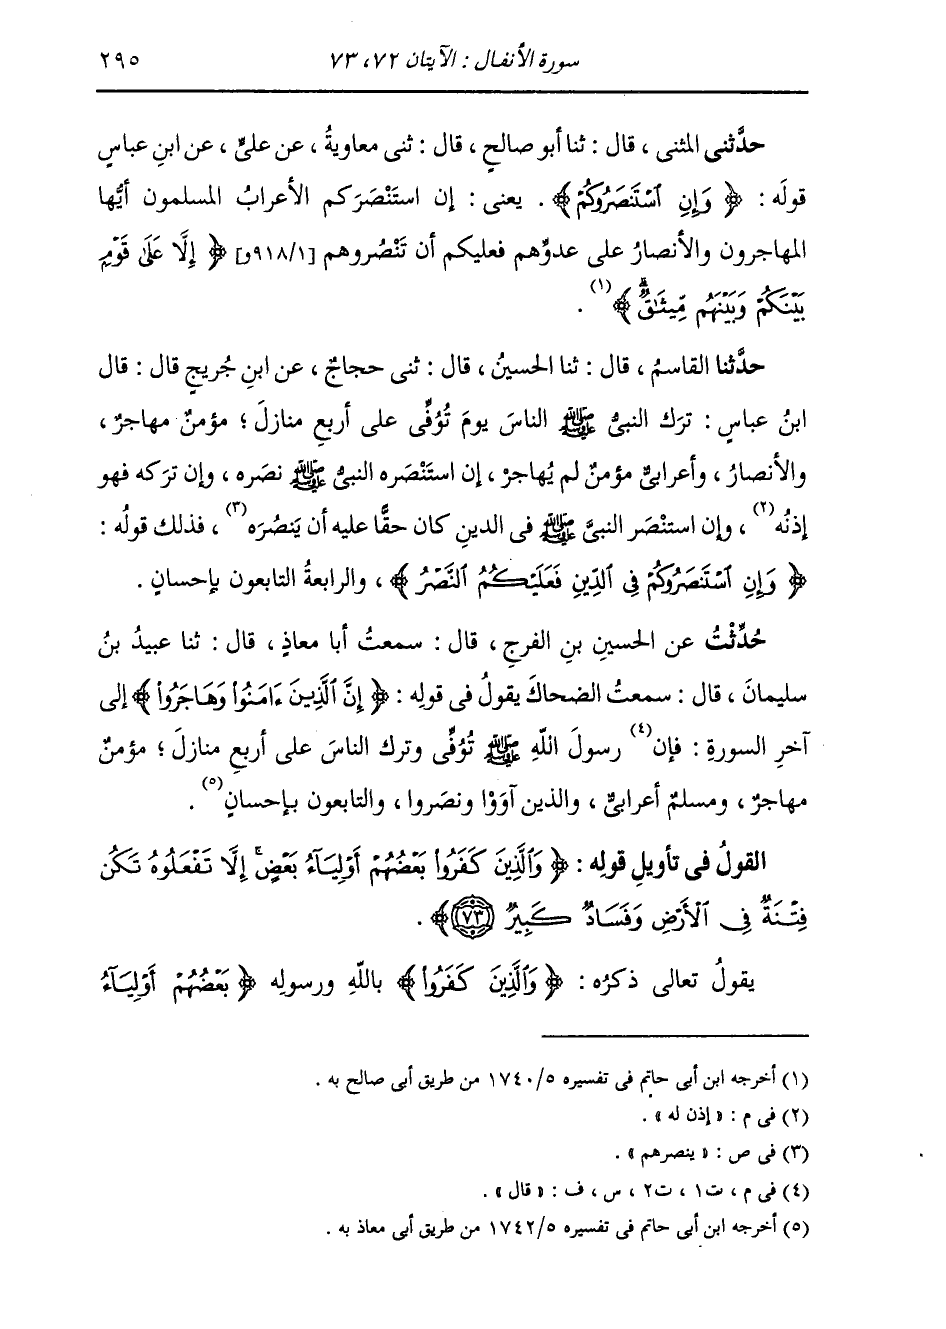 سورة الأنفال : الآيتان ٧٢، ٧٣
٢٩٥
حدَّثنى المثنى ، قال : ثنا أبو صالحٍ ، قال : ثنى معاويةُ ، عن علىٍّ ، عن ابنِ عباسٍ
قولَه : ﴿ وَإِنِ ٱسْتَنصَرُوكُمْ ﴾ . يعنى : إن استَنْصَرَكم الأعرابُ المسلمون أيُّها
المهاجرون والأنصارُ على عدوِّهم فعليكم أن تَنْصُروهم [٩١٨/١و] ﴿ إِلَّا عَلَىٰ قَوْمٍۭ
بَيْنَكُمْ وَبَيْنَهُم مِّيثَٰقٌۗ ﴾(١) .
حدَّثنا القاسمُ ، قال : ثنا الحسينُ ، قال : ثنى حجاجٌ ، عن ابنِ جُريجٍ قال : قال
ابنُ عباسٍ : ترَك النبىُّ ﷺ الناسَ يومَ تُوُفِّى على أربعِ منازلَ ؛ مؤمنٌ مهاجرٌ ،
والأنصارُ ، وأعرابىٌّ مؤمنٌ لم يُهاجرْ ، إن استَنْصَره النبىُّ ﷺ نصَره ، وإن ترَكه فهو
إذنُه(٢) ، وإن استنْصَر النبىَّ ﷺ فى الدينِ كان حقًّا عليه أن يَنصُرَه(٣) ، فذلك قولُه :
﴿ وَإِنِ ٱسْتَنصَرُوكُمْ فِى ٱلدِّينِ فَعَلَيْكُمُ ٱلنَّصْرُ ﴾ ، والرابعةُ التابعون بإحسانٍ .
حُدِّثْتُ عن الحسينِ بنِ الفرجِ ، قال : سمعتُ أبا معاذٍ ، قال : ثنا عبيدُ بنُ
سليمانَ ، قال : سمعتُ الضحاكَ يقولُ فى قولِه : ﴿ إِنَّ ٱلَّذِينَ ءَامَنُوا۟ وَهَاجَرُوا۟ ﴾ إلى
آخرِ السورةِ : فإن(٤) رسولَ اللَّهِ ﷺ تُوُفِّى وترك الناسَ على أربعِ منازلَ ؛ مؤمنٌ
مهاجرٌ ، ومسلمٌ أعرابىٌّ ، والذين آوَوْا ونصَروا ، والتابعون بإحسانٍ(٥) .
القولُ فى تأويلِ قولِه : ﴿ وَٱلَّذِينَ كَفَرُوا۟ بَعْضُهُمْ أَوْلِيَآءُ بَعْضٍۚ إِلَّا تَفْعَلُوهُ تَكُن
فِتْنَةٌ فِى ٱلْأَرْضِ وَفَسَادٌ كَبِيرٌ ٧٣ ﴾ .
يقولُ تعالى ذكرُه : ﴿ وَٱلَّذِينَ كَفَرُوا۟ ﴾ باللَّهِ ورسولِه ﴿ بَعْضُهُمْ أَوْلِيَآءُ
(١) أخرجه ابن أبى حاتم فى تفسيره ١٧٤٠/٥ من طريق أبى صالح به .
(٢) فى م : « إذن له » .
(٣) فى ص : « ينصرهم » .
(٤) فى م ، ت١ ، ت٢ ، س ، ف : « قال » .
(٥) أخرجه ابن أبى حاتم فى تفسيره ١٧٤٢/٥ من طريق أبى معاذ به .